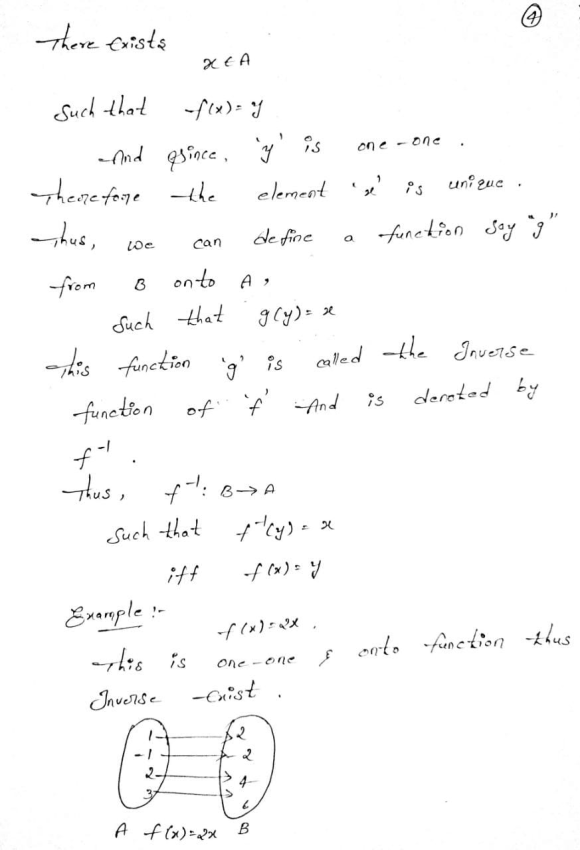 4
There Exists
x ∈ A
Such that f(x) = y
And since, 'y' is one-one .
Therefore the element 'x' is unique .
Thus, we can define a function say "g"
from B onto A ,
Such that g(y) = x
This function 'g' is called the Inverse
function of 'f' And is denoted by
f⁻¹ .
Thus, f⁻¹: B → A
Such that f⁻¹(y) = x
iff f(x) = y
Example :-
f(x) = 2x .
This is one-one & onto function thus
Inverse Exist .
1 2
-1 2
2 4
3 6
A f(x)=2x B